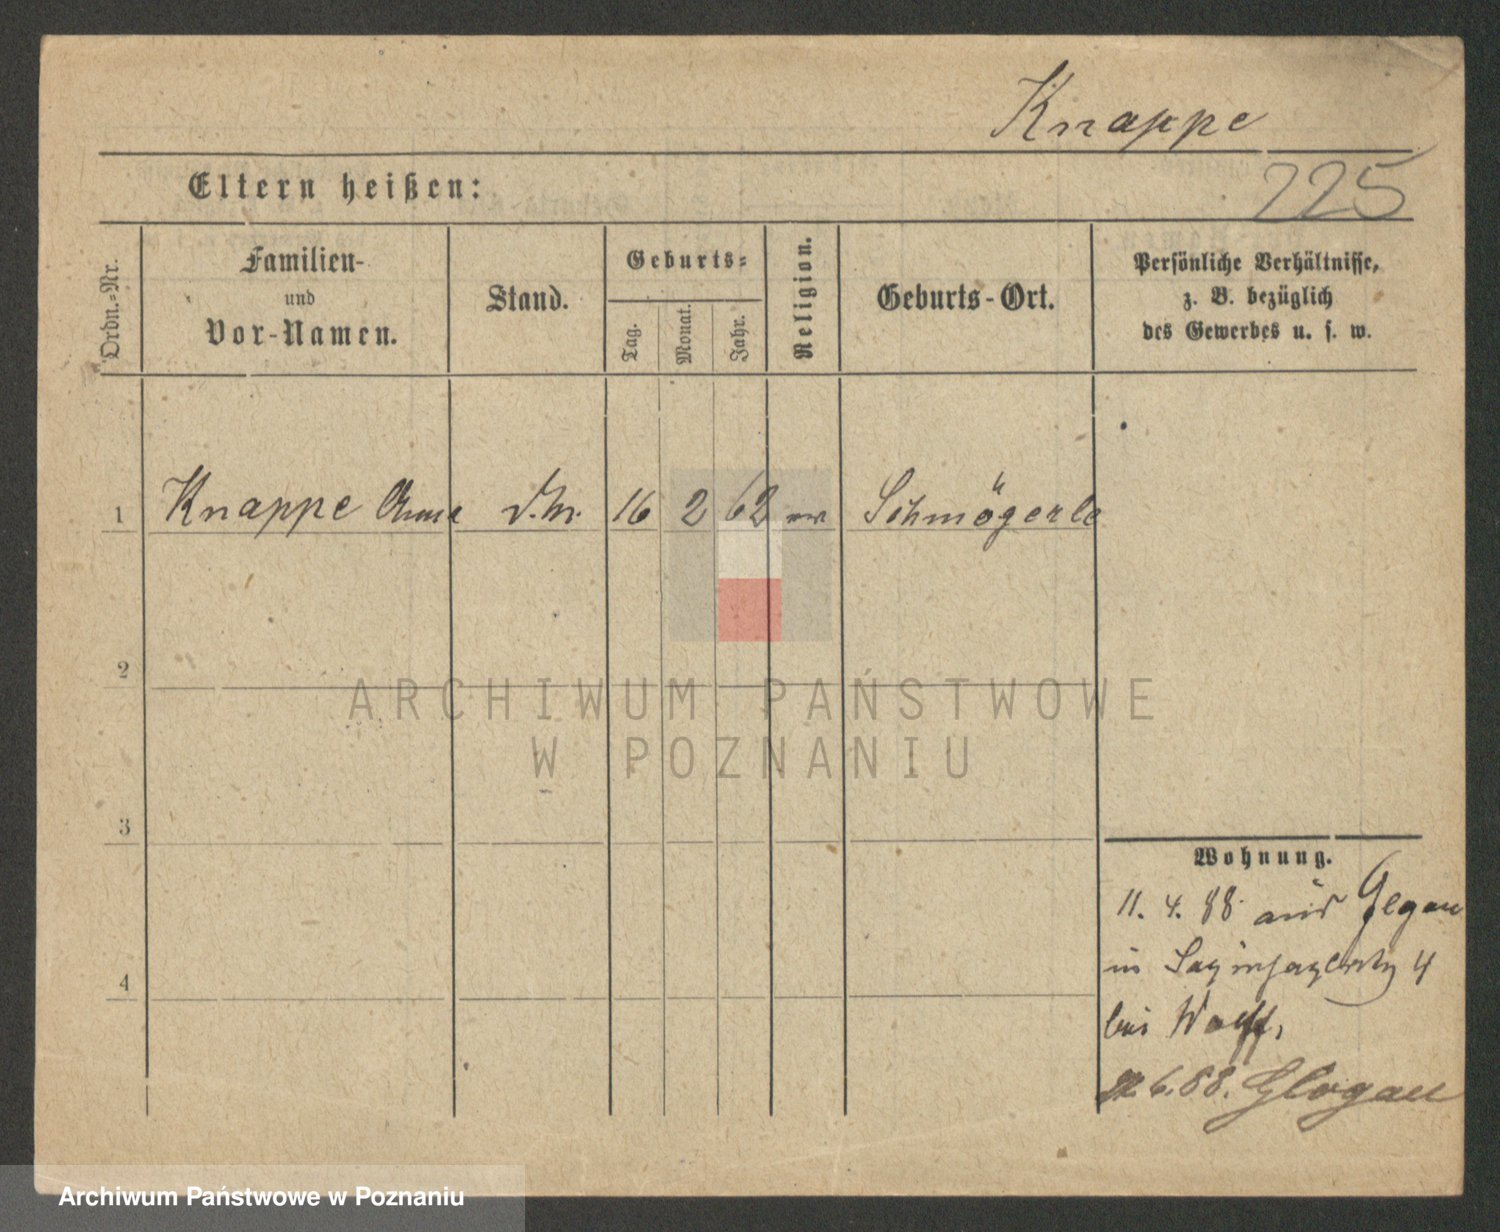 Knappe
225
Eltern heißen:
Ordn.=Nr.
Familien-
und
Vor-Namen.
Stand.
Geburts=
Tag.
Monat.
Jahr.
Religion.
Geburts-Ort.
Persönliche Verhältnisse,
z. B. bezüglich
des Gewerbes u. s. w.
1 Knappe Anna 16 2 62 Schmögerle
2
3
4
Wohnung.
11. 4. 88 aus Glogau
in 4
bei Wolff,
6. 88. Glogau
ARCHIWUM PAŃSTWOWE
W POZNANIU
Archiwum Państwowe w Poznaniu